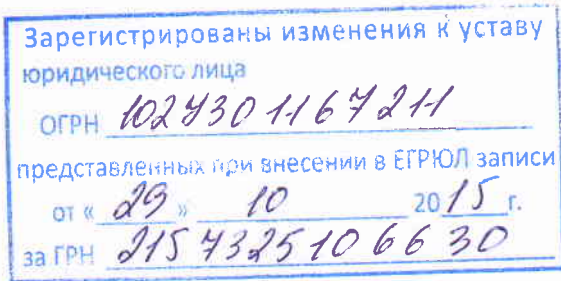 Зарегистрированы изменения к уставу
юридического лица
ОГРН 1027301167211
представленных при внесении в ЕГРЮЛ записи
от « 29 » 10 2015 г.
за ГРН 2157325106630